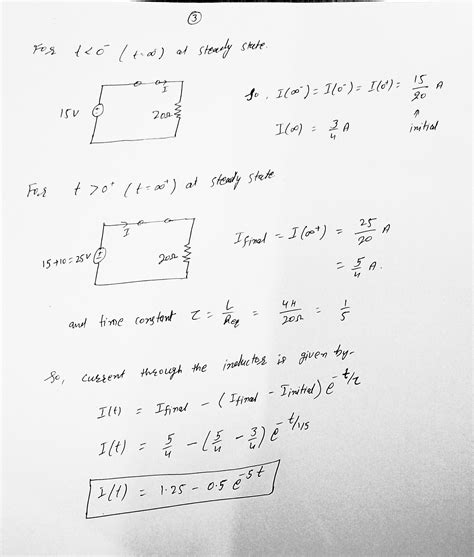 ③
For t<0⁻ (t=∞) at steady state.
I
15V
20Ω
So, I(∞⁻) = I(0⁻) = I(0⁺) = 15/20 A
↑
I(∞) = 3/4 A initial
For t>0⁺ (t=∞⁺) at steady state
I
15+10=25V
20Ω
I final = I(∞⁺) = 25/20 A
= 5/4 A.
and time constant τ = L/Req = 4H/20Ω = 1/5
So, current through the inductor is given by-
I(t) = I final - (I final - I initial) e^-t/τ
I(t) = 5/4 - (5/4 - 3/4) e^-t/1/5
I(t) = 1.25 - 0.5 e^-5t